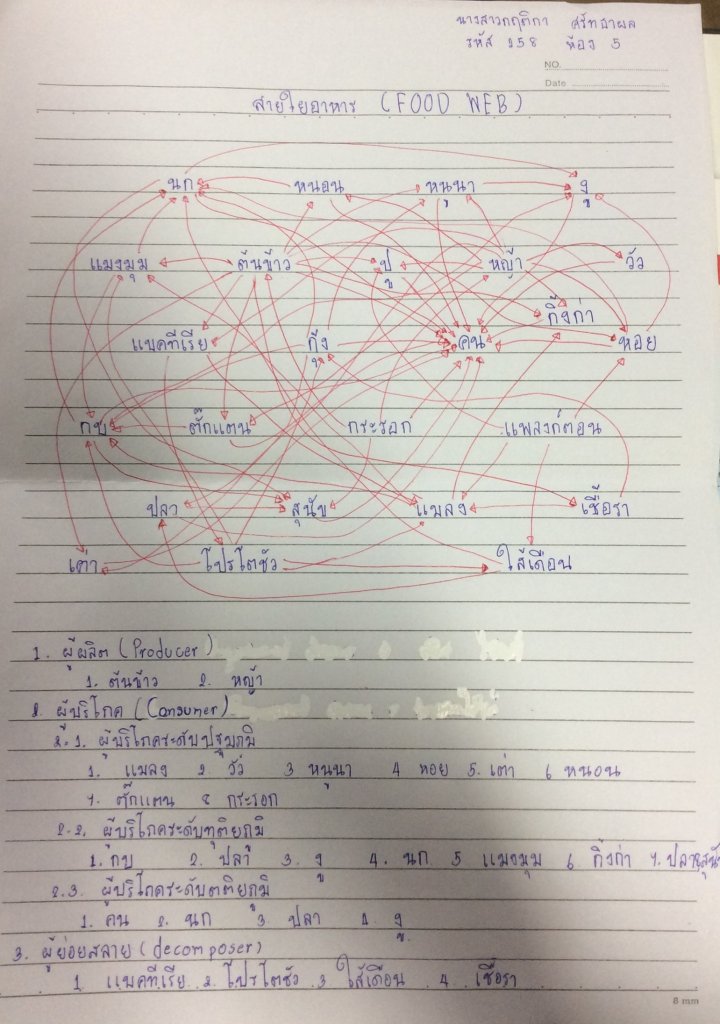 นางสาวกฤติกา ศรัทธาผล
รหัส 258 ห้อง 5
NO.
Date
สายใยอาหาร (FOOD WEB)
นก หนอน หนูนา งู
แมงมุม ต้นข้าว ปู หญ้า วัว
กิ้งก่า
แบคทีเรีย กุ้ง คน หอย
กบ ตั๊กแตน กระรอก แพลงก์ตอน
ปลา สุนัข แมลง เชื้อรา
เต่า โปรโตซัว ไส้เดือน
1. ผู้ผลิต (Producer)
1. ต้นข้าว 2. หญ้า
2. ผู้บริโภค (Consumer)
2.1. ผู้บริโภคระดับปฐมภูมิ
1. แมลง 2 วัว 3 หนูนา 4 หอย 5. เต่า 6 หนอน
7. ตั๊กแตน 8 กระรอก
2.2. ผู้บริโภคระดับทุติยภูมิ
1. กบ 2. ปลา 3. งู 4. นก 5 แมงมุม 6 กิ้งก่า 7. ปลา 8. สุนัข
2.3. ผู้บริโภคระดับตติยภูมิ
1. คน 2. นก 3 ปลา 4. งู
3. ผู้ย่อยสลาย (decomposer)
1 แบคทีเรีย 2. โปรโตซัว 3 ไส้เดือน 4. เชื้อรา
8 mm